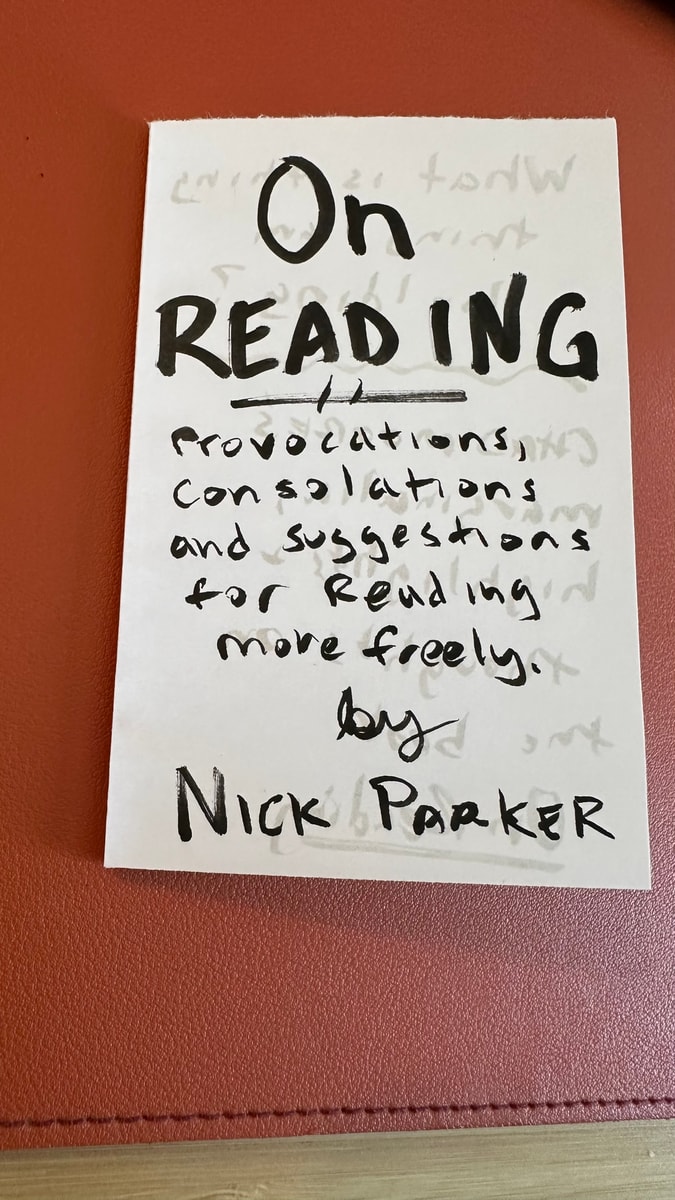 On
READING
Provocations,
Consolations
and suggestions
for Reading
more freely.
by
NICK PARKER